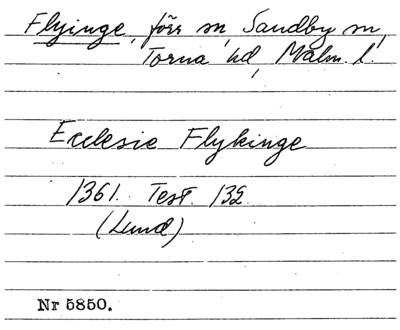 Flyinge, förr sn, Sandby sn,
Torna hd, Malm. l.
Ecclesie Flykinge
1361. Test. 132
(Lund)
Nr 5850.